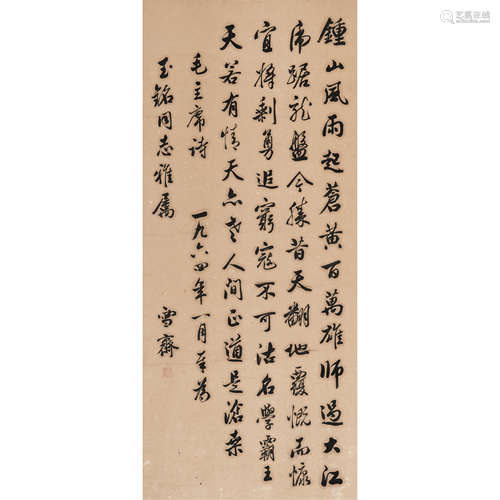 鍾山風雨起蒼黃百萬雄師過大江
虎踞龍盤今勝昔天翻地覆慨而慷
宜將剩勇追窮寇不可沽名學霸王
天若有情天亦老人間正道是滄桑
毛主席詩 一九六四年一月 為
玉銘同志雅屬 雪齋
艺狐在线